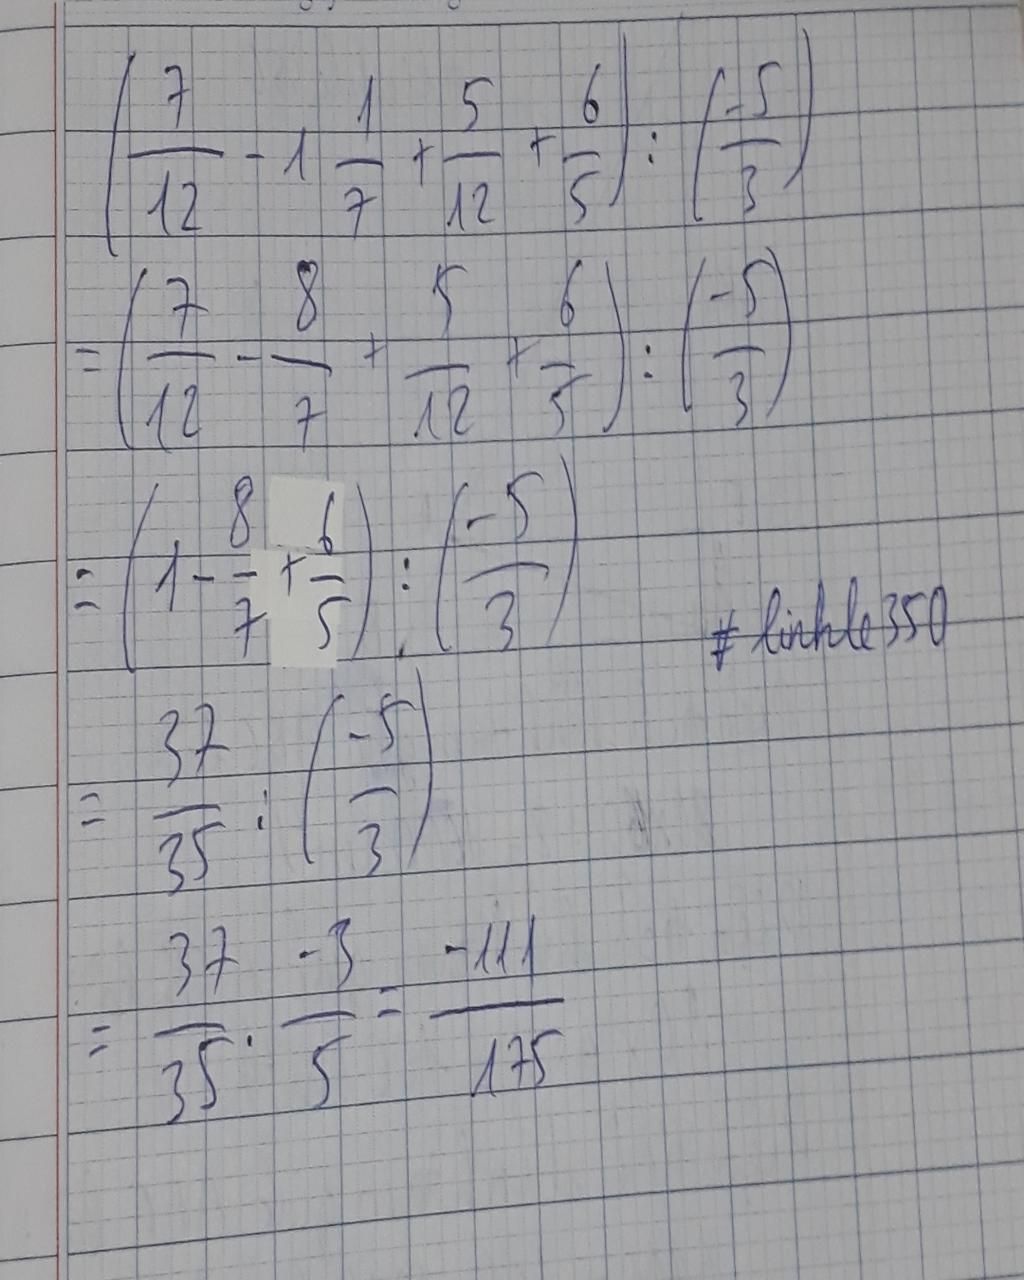 (7/12 - 1 1/7 + 5/12 + 6/5) : (-5/3)
= (7/12 - 8/7 + 5/12 + 6/5) : (-5/3)
= (1 - 8/7 + 6/5) : (-5/3)
#linhle350
= 37/35 : (-5/3)
= 37/35 . -3/5 = -111/175